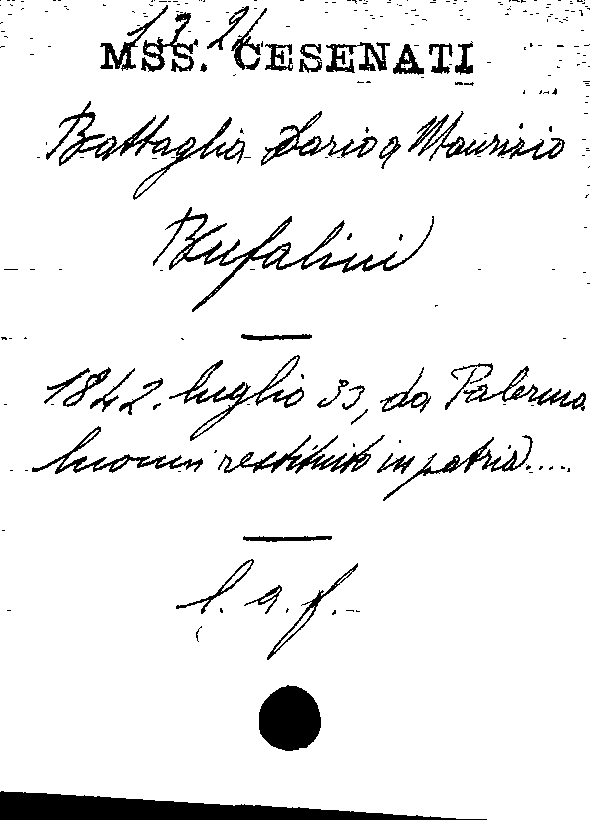 13.24
MSS. CESENATI
Battaglia Dario a Maurizio
Bufalini
1842. luglio 33, da Palermo
restituito in patria....
l. a. f.